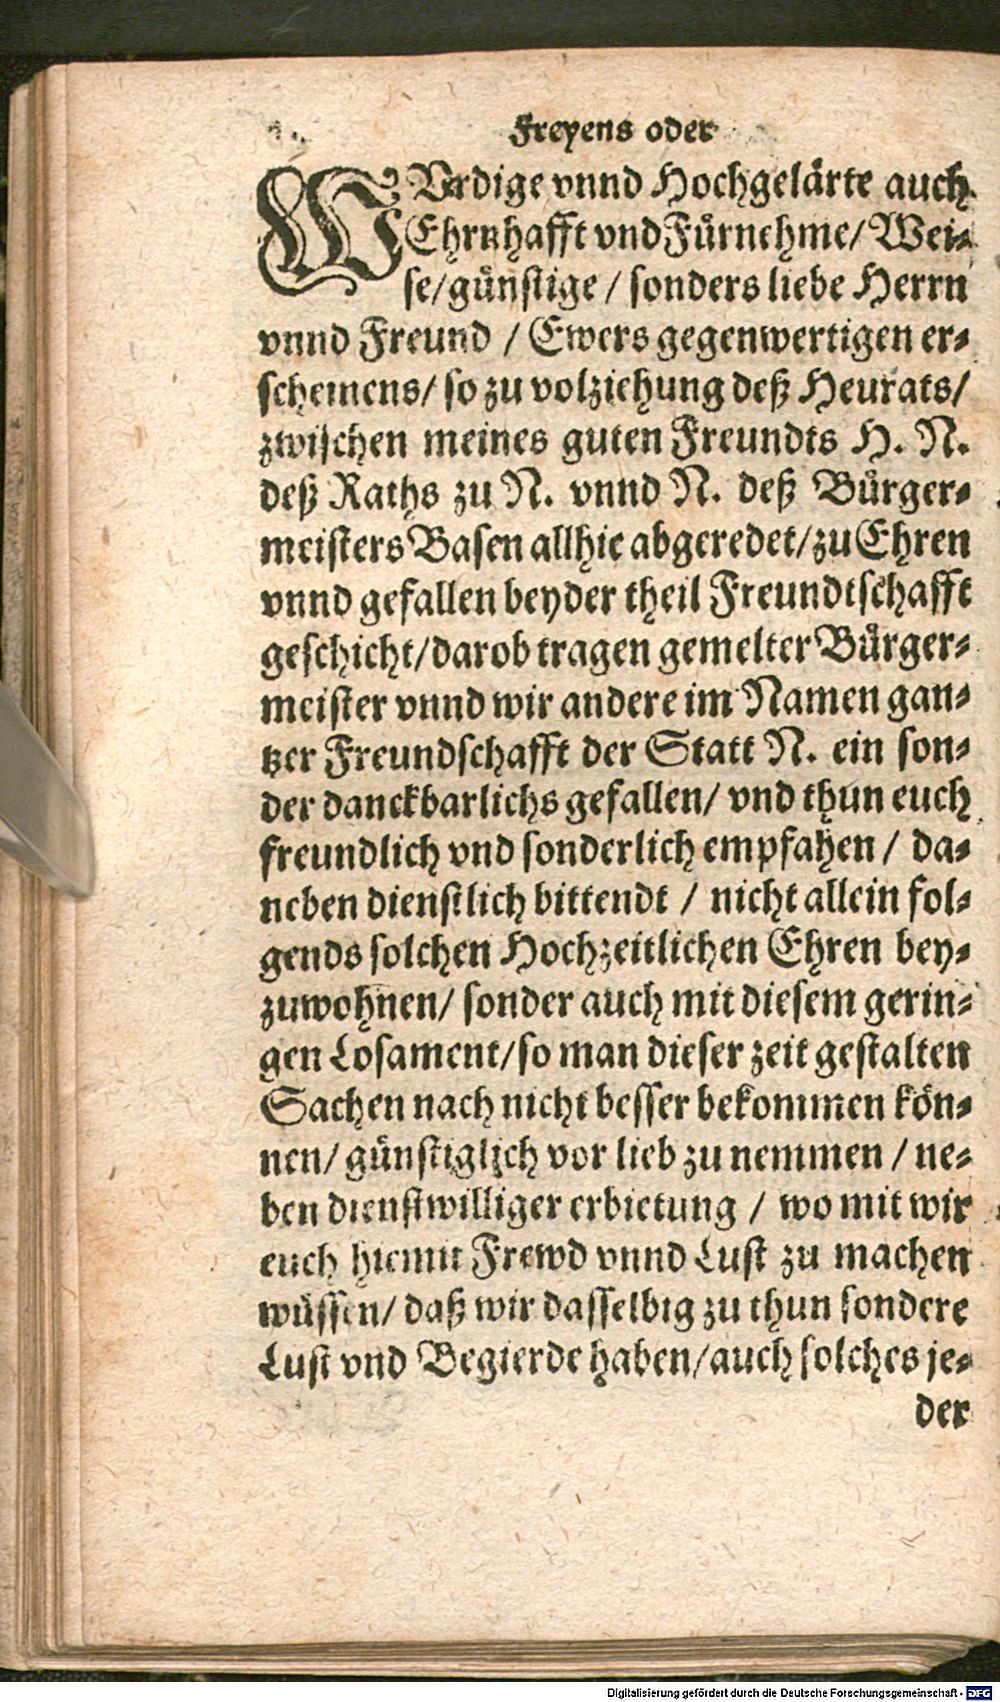 Freyens oder
WVrdige vnnd Hochgelärte auch
Ehrnhafft vnd Fürnehme/ Wei-
se/ günstige / sonders liebe Herrn
vnnd Freund / Ewers gegenwertigen er-
scheinens/ so zu volziehung deß Heurats/
zwischen meines guten Freundts H. N.
deß Raths zu N. vnnd N. deß Bürger-
meisters Basen allhie abgeredet/ zu Ehren
vnnd gefallen beyder theil Freundtschafft
geschicht/ darob tragen gemelter Bürger-
meister vnnd wir andere im Namen gan-
tzer Freundschafft der Statt N. ein son-
der danckbarlichs gefallen/ vnd thun euch
freundlich vnd sonderlich empfahen / da-
neben dienstlich bittendt / nicht allein fol-
gends solchen Hochzeitlichen Ehren bey-
zuwohnen/ sonder auch mit diesem gerin-
gen Losament/ so man dieser zeit gestalten
Sachen nach nicht besser bekommen kön-
nen/ günstiglich vor lieb zu nemmen / ne-
ben dienstwilliger erbietung / wo mit wir
euch hiemit Frewd vnnd Lust zu machen
wüssen/ daß wir dasselbig zu thun sondere
Lust vnd Begierde haben/ auch solches je-
der
Digitalisierung gefördert durch die Deutsche Forschungsgemeinschaft - DFG